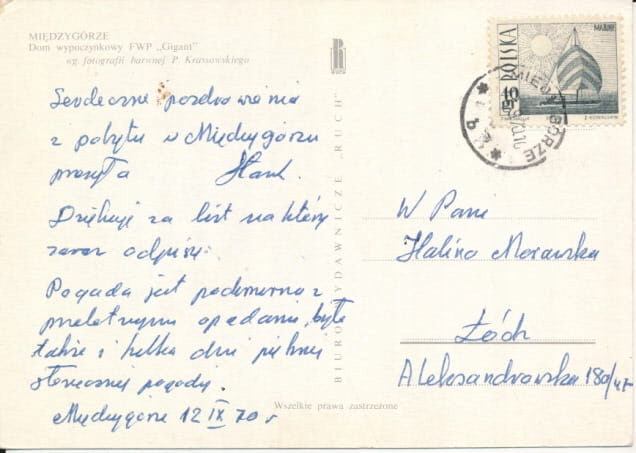 MIĘDZYGÓRZE
Dom wypoczynkowy FWP „Gigant”
wg. fotografii barwnej P. Krassowskiego
Serdeczne pozdrowienia
z pobytu w Międzygórzu
przesyła
Dziękuję za list na który
zaraz odpiszę.
Pogoda jest pochmurna z
przelotnymi opadami, było
także i kilka dni pięknej
słonecznej pogody.
Międzygórze 12 IX 70 r
BIURO WYDAWNICZE „RUCH”
Wszelkie prawa zastrzeżone
POLSKA
MAZURY
10
GR
W Pani
Halina Morawska
Łódź
Aleksandrowska 180/47